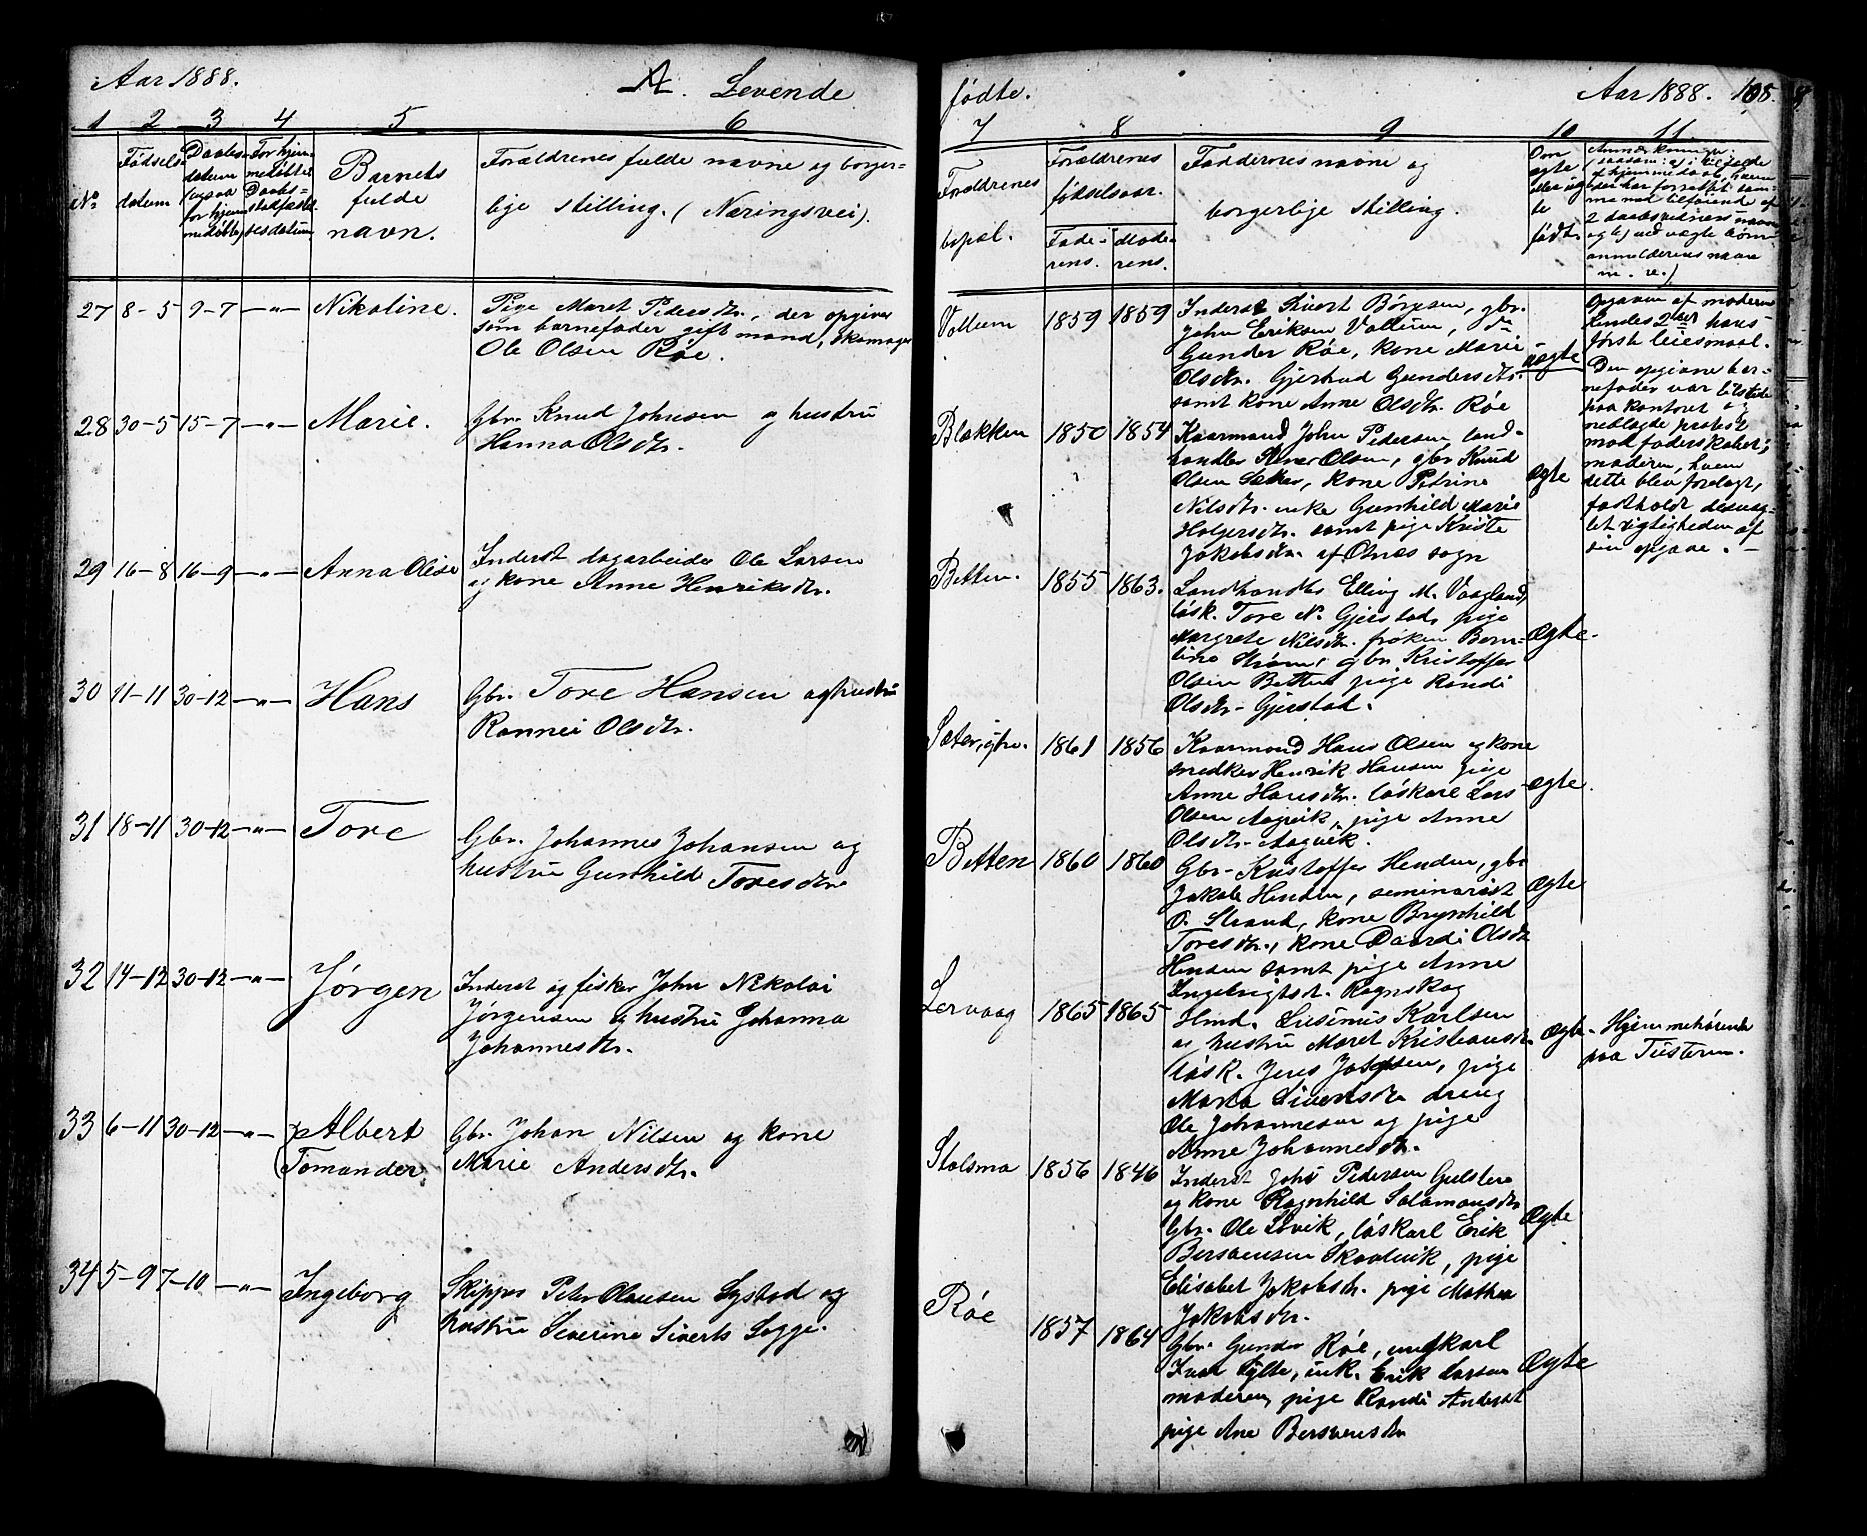 Aar 1888. A. Levende
1 2 3 4 5 6
No.
Fødsels-
datum
Daabs-
datum
for hjem-
medøbte
For hjem-
medøbte
Daabs-
stadfæstel-
sesdatum.
Barnets
fulde
navn.
Forældrenes fulde navne og borger-
lige stilling. (Næringsvei).
27 8-5 9-7 -„- Nikoline. Pige Maret Pedersdtr., der opgiver
som barnefader gift mand, skomager
Ole Olsen Røe.
28 30-5 15-7 -„- Marie. Gbr. Knud Johnsen og hustru
Hanna Olsdtr.
29 16-8 16-9 -„- Anna Olise Inderst dagarbeider Ole Larsen
og kone Anne Henriksdtr.
30 11-11 30-12 -„- Hans Gbr. Tore Hansen og hustru
Rannei Olsdtr.
31 18-11 30-12 -„- Tore Gbr. Johannes Johansen og
hustru Gunhild Toresdtr.
32 14-12 30-12 -„- Jørgen Inderst og fisker John Nikolai
Jørgensen og hustru Johanna
Johannesdtr.
33 6-11 30-12 -„- Albert
Tomander. Gbr. Johan Nilsen og kone
Marie Andersdtr.
34 5-9 7-10 -„- Ingeborg Skipper Peter Olausen Systad og
hustru Severine Siverts Legge.
fødte. Aar 1888. 108.
7 8 9 10 11
Forældrenes
bopæl.
Forældrenes
fødselsaar.
Fade-
rens.
Mode-
rens.
Faddernes navne og
borgerlige stilling.
Om
ægte
eller uæg-
te
født.
Anmerkninger.
m. v.)
Vollum 1859 1859 Inderst Sivert Børgesen, gbr.
John Eriksen Vollum, do
Gunder Røe, kone Marie
Olsdtr. Gjertrud Gundersdtr.
samt kone Anne Olsdtr. Røe
uægte
Opgaven af moderen
kendes 2det hans
første leiesmaal.
Den opgivne bar-
nefader var tilstede
paa kontoret og
nedlagde protest
mod faderskabet;
moderen, hvem
dette blev forelagt,
fastholdt desuag-
tet rigtigheden af
sin opgave. -
Blakken 1850 1854 Kaarmand John Pedersen, land-
handler Olsen, gbr. Knud
Olsen Sæter, kone Petrine
Nilsdtr. enke Gunhild Marie
Holgersdtr. samt pige Kriste
Jakobsdtr. af Olnes sogn
ægte
Betten. 1855 1863. Landhandler Elling M. Vaagland,
løsk. Tore N. Gjerstad, pige
Margrete Nilsdtr. frøken Bern-
tine Strøm, gbr. Kristoffer
Olsen Betten, pige Randi
Olsdtr. Gjerstad.
Ægte.
Sæter, ytre. 1861 1856 Kaarmand Hans Olsen og kone
snedker Henrik Hansen pige
Anne Hansdtr. løskarl Lars
Olsen Aagvik, pige Anne
Olsdtr. Aagvik.
Ægte.
Betten 1860 1860 Gbr. Kristoffer Henden, gbr.
Jakob Henden, seminarist
O. Strand, kone Brynhild
Toresdtr., kone Daardi Olsdtr.
Henden samt pige Anne
Ingebrigtsdt. Ragnskog
Ægte
Lervaag 1865 1865 Hmd. Lusinus Karlsen
og hustru Maret Kristiansdtr.
løsk. Jens Josepsen, pige
Marta Sivertsdtr. dreng
Ole Johannesen og pige
Anne Johannesdtr.
Ægte
Hjemmehørende
paa Tusteren.
Stolsmo 1856 1846 Inderst John Pedersen Gulsten
og kone Ragnhild Salamonsdtr.
Gbr. Ole Løvik, løskarl Erik
Bersvensen Skaalvik, pige
Elisabet Jakobsdtr. pige Mathea
Jakobsdtr.
Ægte
Røe 1857 1864 Gbr. Gunder Røe, ungkarl
Ivar Sylte, enk. Erik Larsen
moderen, pige Randi Andersdt
pige Ane Bersvensdtr
Ægte